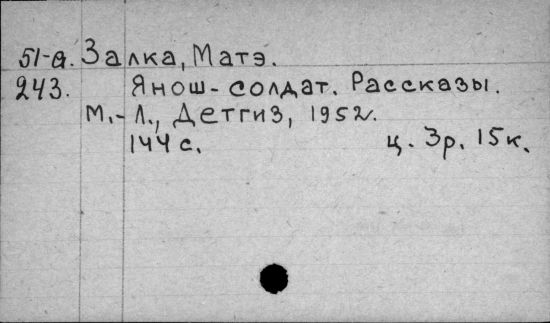 51-а. Залка, Матэ.
243. Янош-солдат. Рассказы.
М.-Л., Детгиз, 1952.
144 с. ц. 3р. 15к.